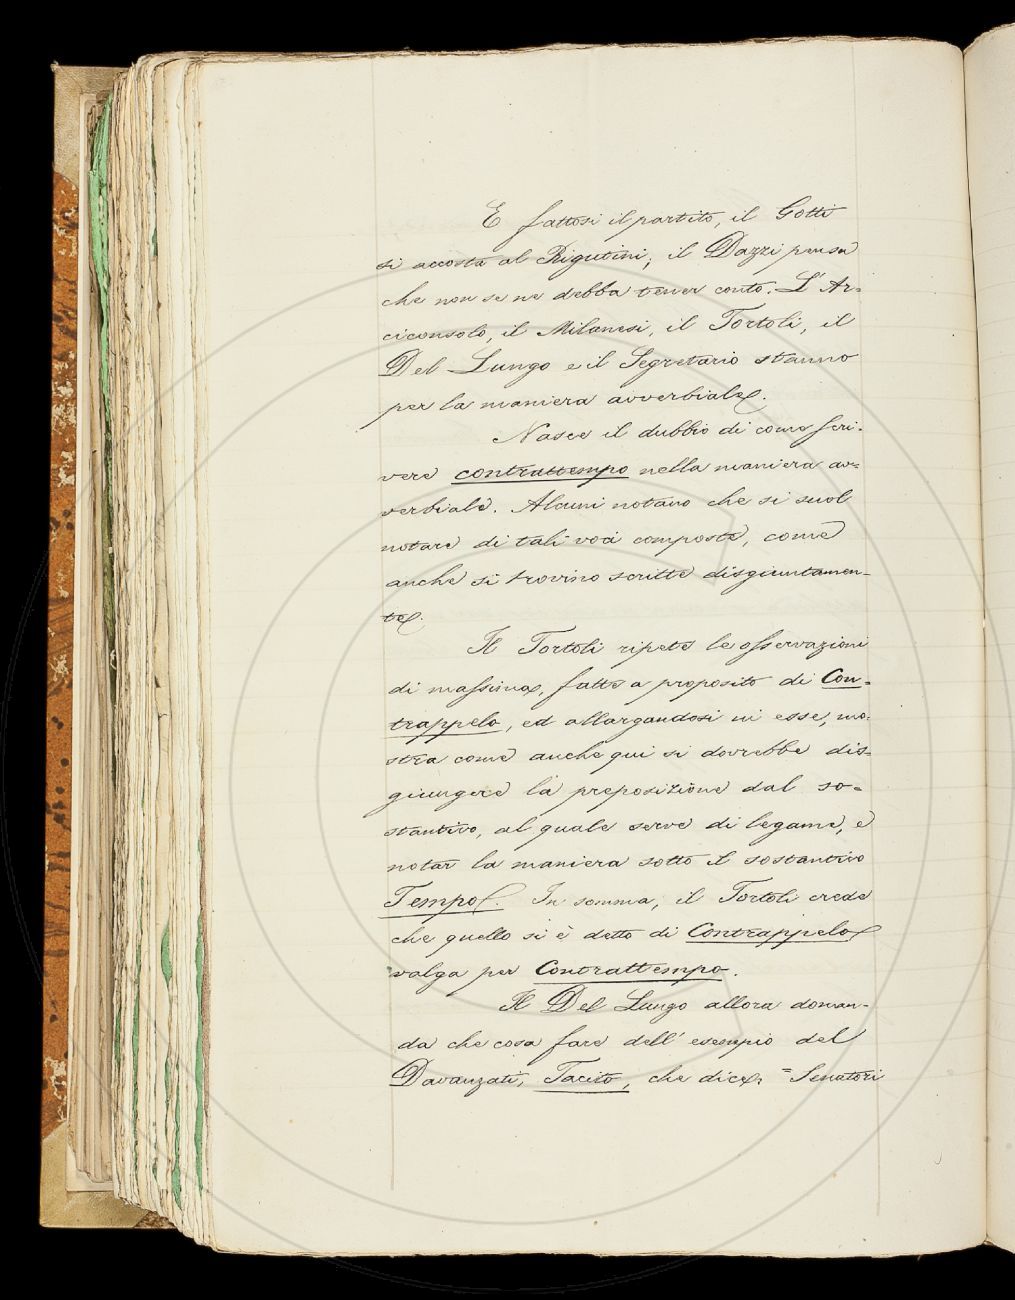 E fattosi il partito, il Gotti
si accosta al Rigutini; il Dazzi pensa
che non se ne debba tener conto. L'Ar=
ciconsolo, il Milanesi, il Tortoli, il
Del Lungo e il Segretario stanno
per la maniera avverbiale.
Nasce il dubbio di come scri-
vere contrattempo nella maniera av=
verbiale. Alcuni notano che si suol
notare di tali voci composte, come
anche si trovino scritte disgiuntamen-
te.
Il Tortoli ripete le osservazioni
di massima, fatte a proposito di Con-
trappelo, ed allargandosi in esse, mo-
stra come anche qui si dovrebbe dis=
giungere la preposizione dal so=
stantivo, al quale serve di legame, e
notar la maniera sotto il sostantivo
Tempo. In somma, il Tortoli crede
che quello si è detto di Contrappelo
valga per Contrattempo.
Il Del Lungo allora doman-
da che cosa fare dell'esempio del
Davanzati, Tacito, che dice, "Senatori